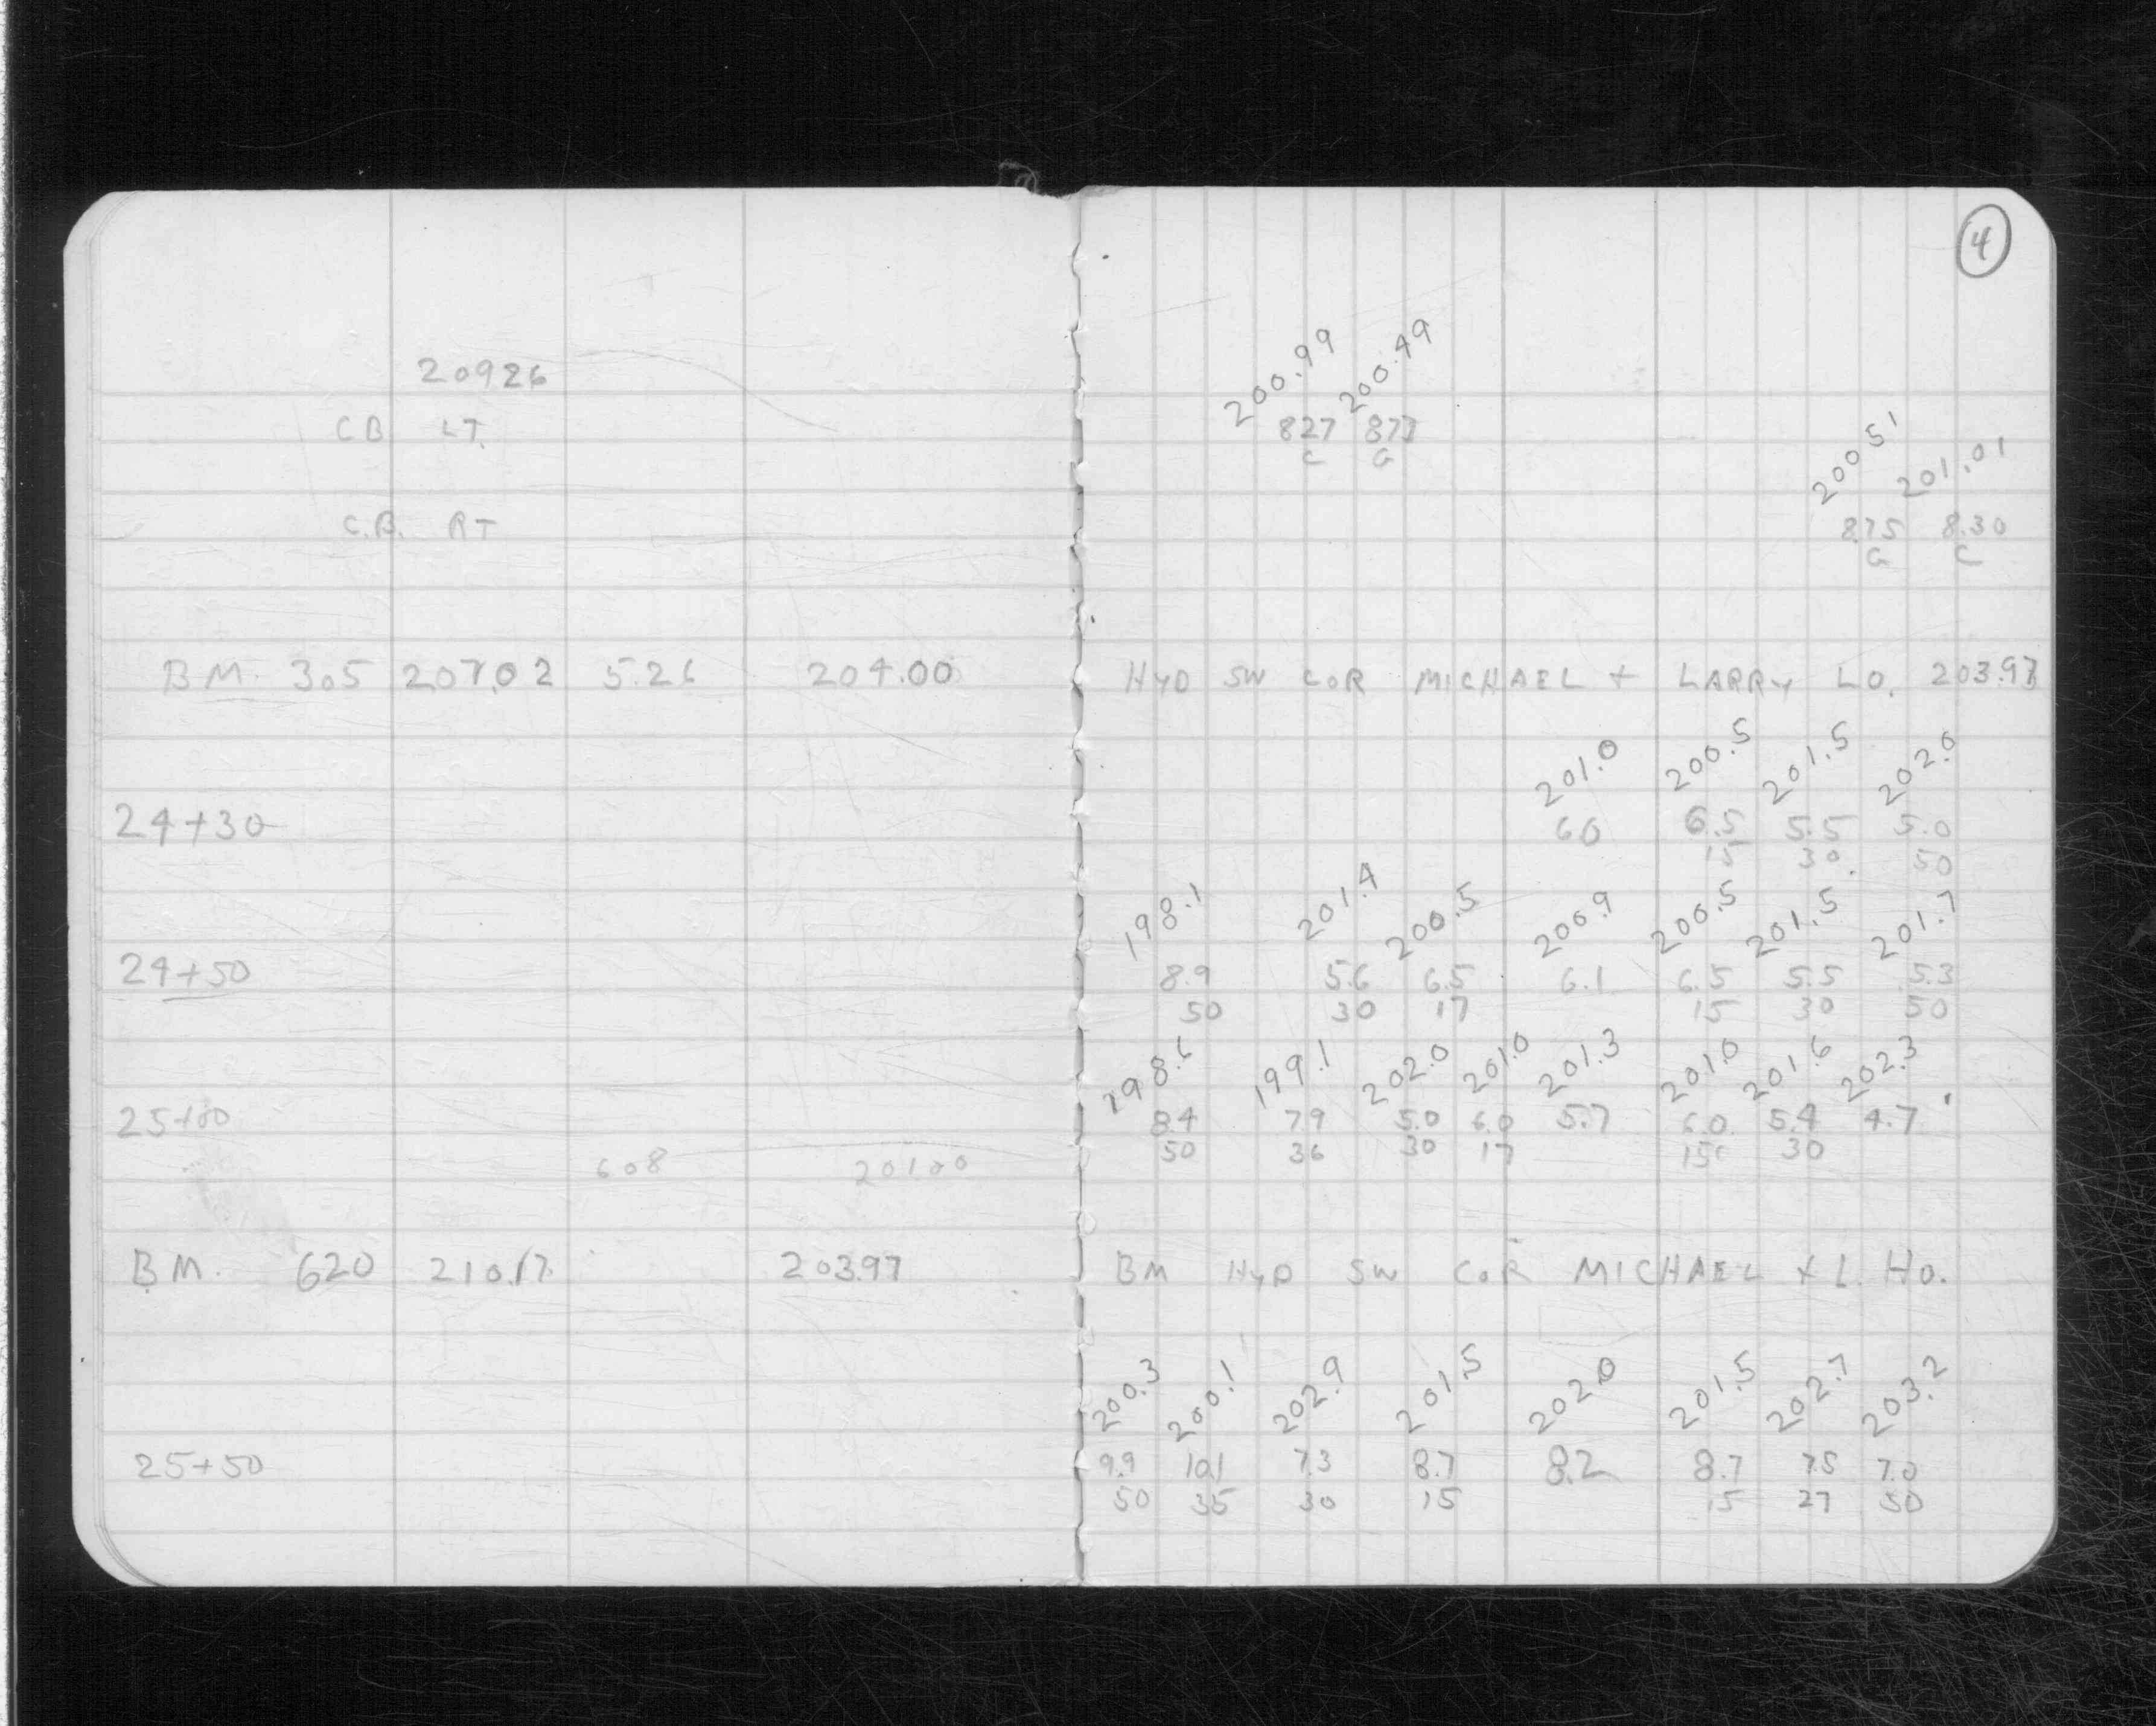 4
20926
200.99 200.49
CB LT. 827 877
C G
200 51 201.01
C.B. RT 875 8.30
G C
BM. 305 207.02 5.26 204.00 HYD SW COR MICHAEL + LARRY LO. 203.97
201.0 200.5 201.5 202.0
24+30 60 6.5 5.5 5.0
15 30 50
198.1 201.4 200.5 200.9 200.5 201.5 201.7
24+50 8.9 5.6 6.5 6.1 6.5 5.5 5.3
50 30 17 15 30 50
198.6 199.1 202.0 201.0 201.3 201.0 201.6 202.3
25+00 84 79 5.0 6.0 5.7 6.0 5.4 4.7
50 36 30 17 15 30
608 20100
BM. 620 210.17 203.97 BM HYD SW COR MICHAEL + L. HO.
200.3 200.1 202.9 201.5 202.0 201.5 202.7 203.2
25+50 9.9 10.1 7.3 8.7 8.2 8.7 75 7.0
50 35 30 15 15 27 50